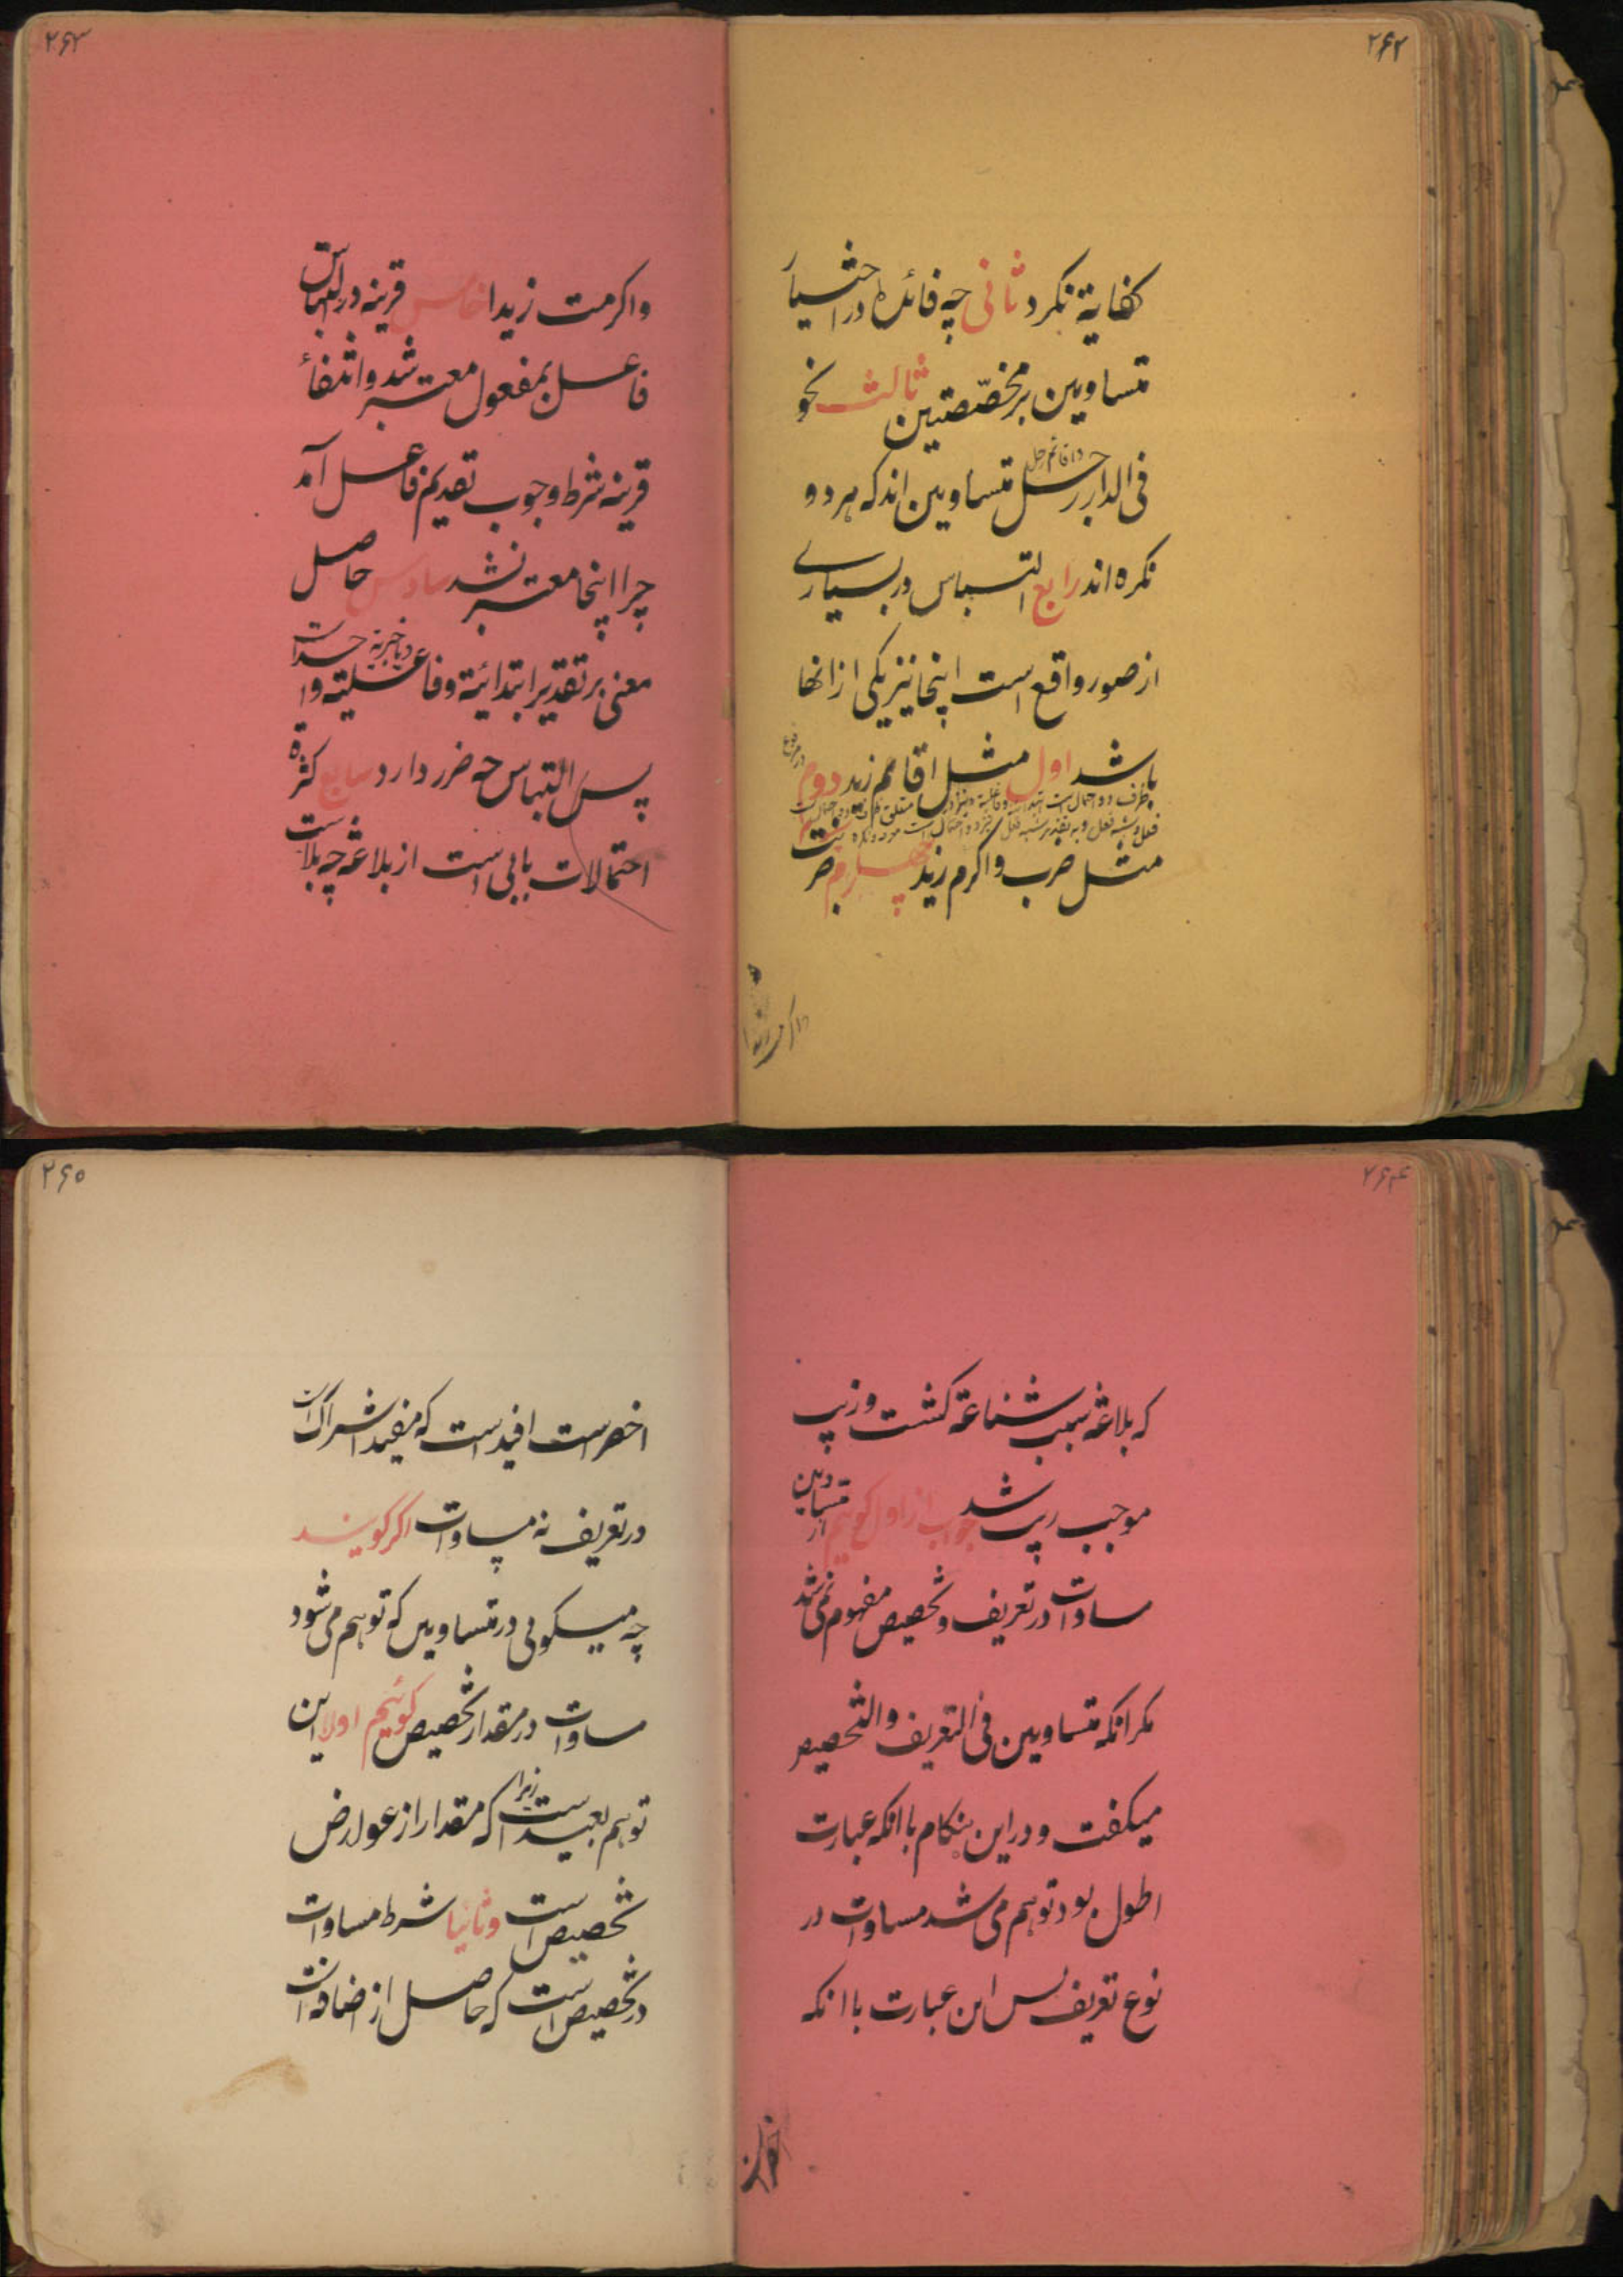 ۲۶۲
کفایة نکرد ثانی چه فائده در اختیار
متساویین بر مخصّصتین ثالث نحو
فی الدار رجل متساویین اند که هر دو
نکره اند رابع التباس در بسیاری
از صور واقع است اینجا نیز یکی از انها
باشد اول مثل اقائم زید دوم
مثل ضرب واکرم زید چهارم ضربت
۲۶۳
واکرمت زیدا خامس قرینه در التباس
فاعل بمفعول معتبر شد و انتفاء
قرینه شرط وجوب تقدیم فاعل آمد
چرا اینجا معتبر نشد سادس حاصل
معنی بر تقدیر ابتدائیة و فاعلیته واحد است
پس التباس چه ضرر دارد سابع کثرة
احتمالات بابی است از بلاغة چه بلاست
۲۶۴
که بلاغة سبب شناعة کشت و زیب
موجب ریب شد جواب از اول کوئیم متساویین از
مساوات در تعریف و تخصیص مفهوم نمی شد
مکر انکه متساویین فی التعریف والتخصیص
میکفت و در این هنکام با انکه عبارت
اطول بود توهم می شد مساوات در
نوع تعریف پس این عبارت با انکه
۲۶۵
اخصر است افید است که مفید اشتراک است
در تعریف نه مساوات اکر کویند
چه میکویی در متساویین که توهم می شود
مساوات در مقدار تخصیص کوئیم اولا این
توهم بعید است زیرا که مقدار از عوارض
تخصیص است و ثانیا شرط مساوات
در تخصیص است که حاصل از اضافه است